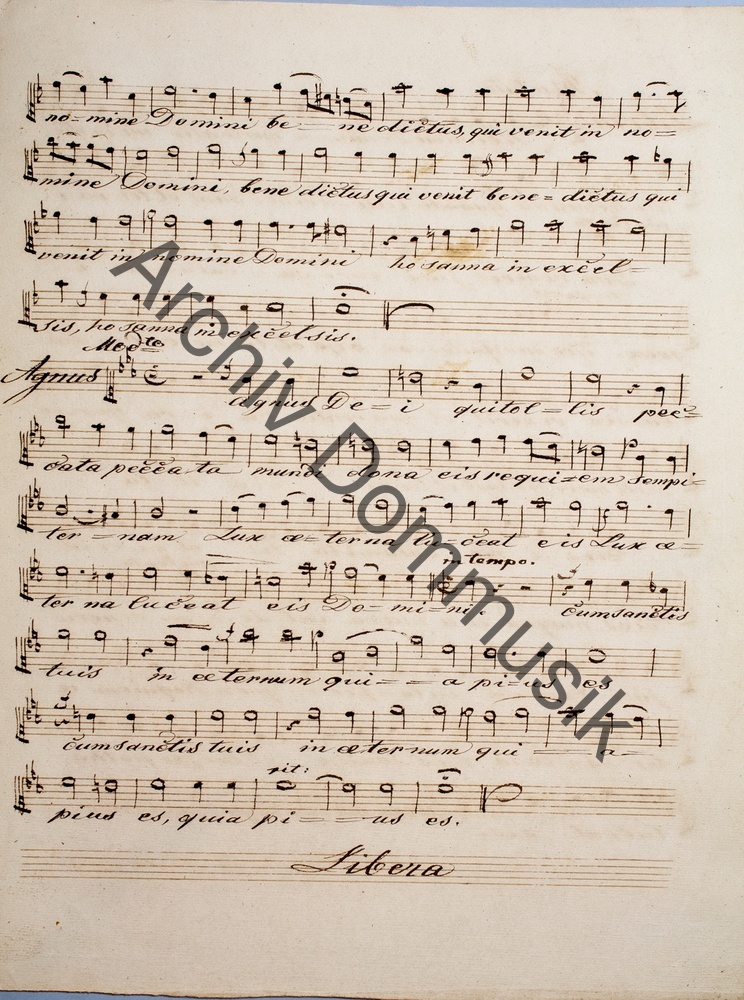 no=mine Domini be - ne dictus, qui venit in no=
mine Domini, bene dictus qui venit bene= dictus qui
venit in nomine Domini ho sanna in excel=
sis, ho sanna in excelsis.
Modto
Agnus
agnus De=i qui tol=lis pec=
cata pecca ta mundi dona eis requi=em sempi=
ter=nam Lux æ=terna lu=ceat eis Lux æ=
in tempo.
ter na luceat eis Do=mi=ni. cum sanctis
tuis in æternum qui= - a pi=us es
cum sanctis tuis in æternum qui - a -
rit:
pius es, quia pi= - - us es.
Libera
Archiv Dommusik